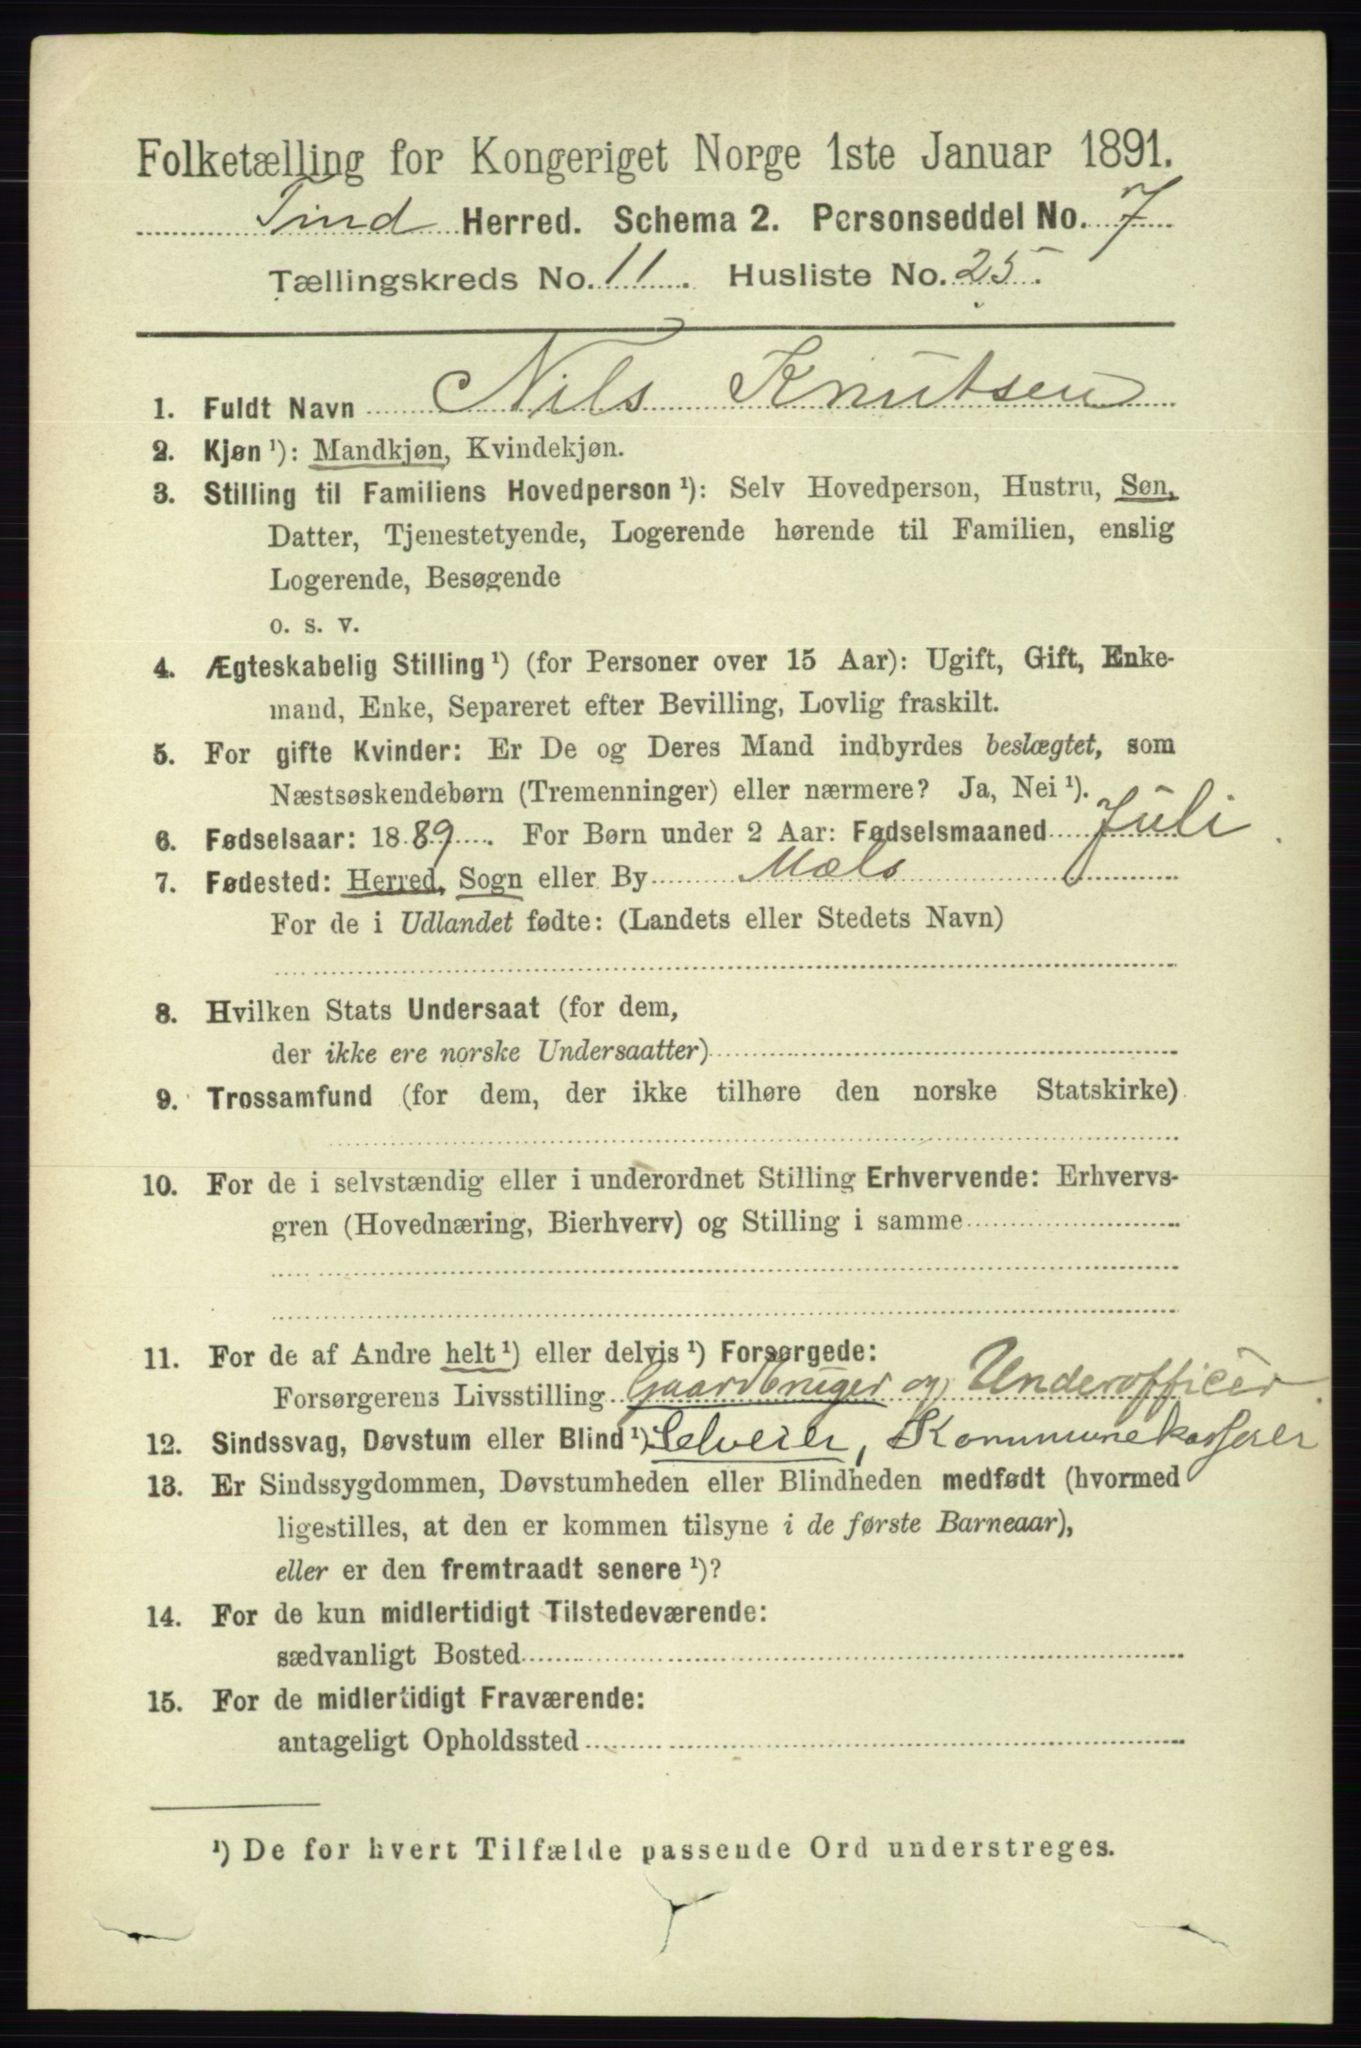 Folketælling for Kongeriget Norge 1ste Januar 1891.
Tind Herred. Schema 2. Personseddel No. 7
Tællingskreds No. 11. Husliste No. 25.
1. Fuldt Navn Nils Knutsen
2. Kjøn ¹): Mandkjøn, Kvindekjøn.
3. Stilling til Familiens Hovedperson ¹): Selv Hovedperson, Hustru, Søn,
Datter, Tjenestetyende, Logerende hørende til Familien, enslig
Logerende, Besøgende
o. s. v.
4. Ægteskabelig Stilling ¹) (for Personer over 15 Aar): Ugift, Gift, Enke-
mand, Enke, Separeret efter Bevilling, Lovlig fraskilt.
5. For gifte Kvinder: Er De og Deres Mand indbyrdes beslægtet, som
Næstsøskendebørn (Tremenninger) eller nærmere? Ja, Nei ¹).
6. Fødselsaar: 1889. For Børn under 2 Aar: Fødselsmaaned Juli
7. Fødested: Herred, Sogn eller By Mæls
For de i Udlandet fødte: (Landets eller Stedets Navn)
8. Hvilken Stats Undersaat (for dem,
der ikke ere norske Undersaatter)
9. Trossamfund (for dem, der ikke tilhøre den norske Statskirke)
10. For de i selvstændig eller i underordnet Stilling Erhvervende: Erhvervs-
gren (Hovednæring, Bierhverv) og Stilling i samme
11. For de af Andre helt ¹) eller delvis ¹) Forsørgede:
Forsørgerens Livsstilling Gaardbruger og Underofficer
12. Sindssvag, Døvstum eller Blind ¹) Selveier, Kommunekasserer
13. Er Sindssygdommen, Døvstumheden eller Blindheden medfødt (hvormed
ligestilles, at den er kommen tilsyne i de første Barneaar),
eller er den fremtraadt senere ¹)?
14. For de kun midlertidigt Tilstedeværende:
sædvanligt Bosted
15. For de midlertidigt Fraværende:
antageligt Opholdssted
¹) De for hvert Tilfælde passende Ord understreges.